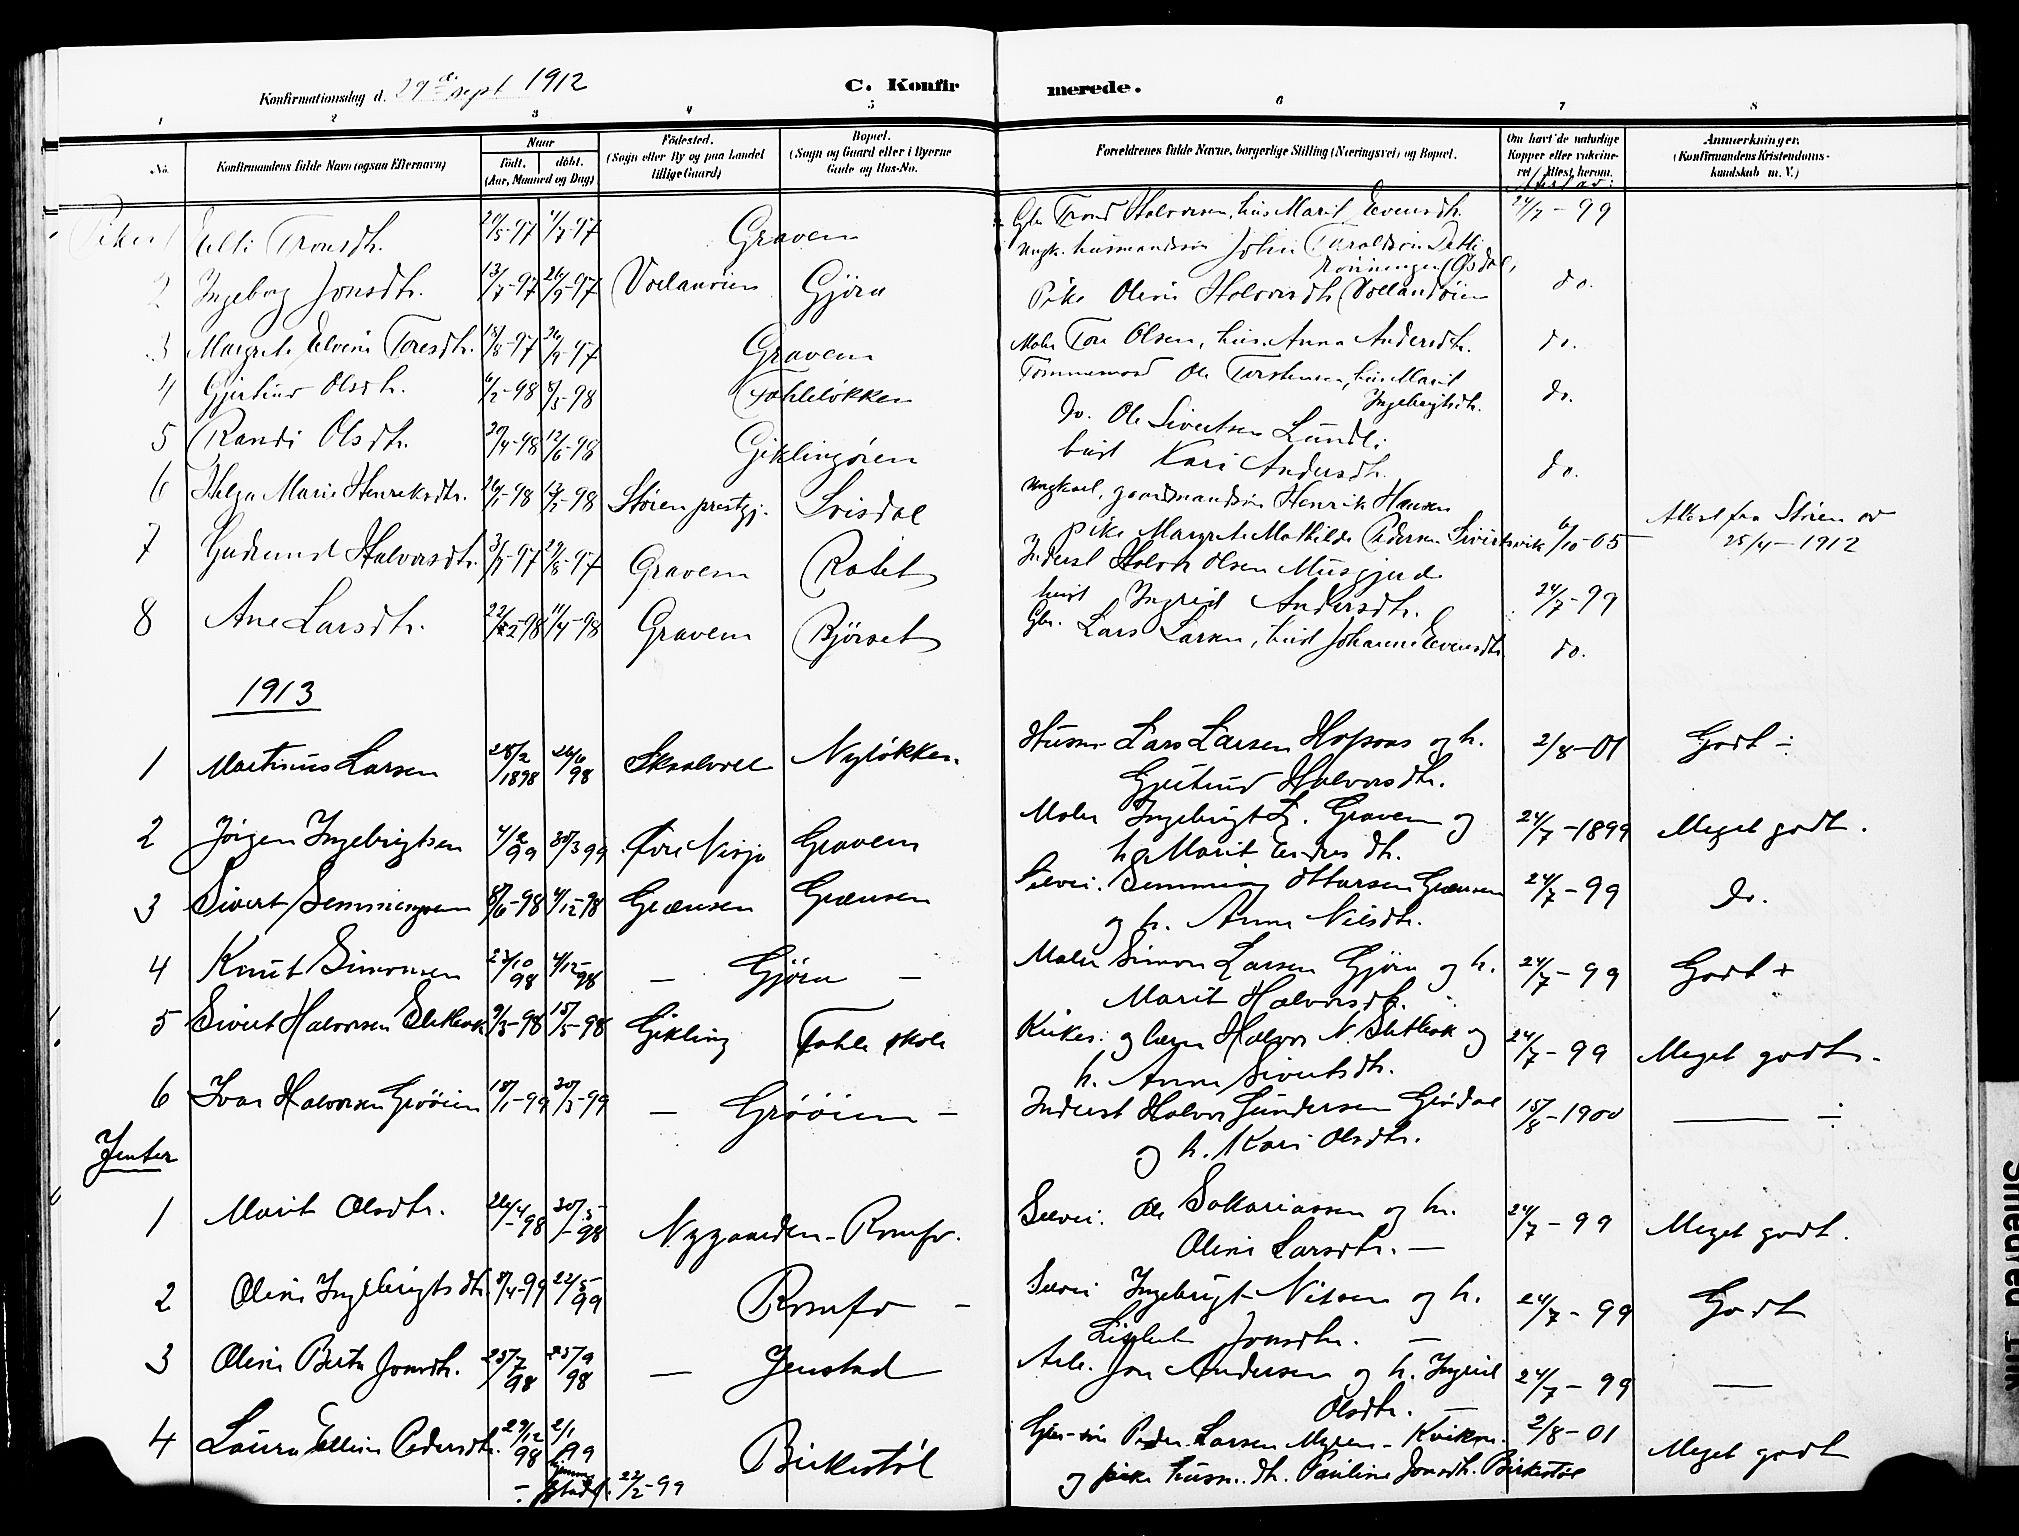 Konfirmationsdag d. 29de sept 1912
C. Konfirmerede.
1 2 3 4 5 6 7 8
No. Konfirmandens fulde Navn (ogsaa Efternavn) Naar født, døbt. (Aar, Maaned og Dag) Fødested. (Sogn eller By og paa Landet tillige Gaard) Bopæl. (Sogn og Gaard eller i Byerne Gade og Hus-No. Forældrenes fulde Navne, borgerlige Stilling (Næringsvei) og Bopæl. Om havt de naturlige Kopper eller vaccineret / Attest herom. Anmærkninger. (Konfirmandens Kristendomskundskab m. V.)
Attest av:
Piker Trondsdtr. Gravem Gbr. Trond Halvorsen, hus. Marit Evensdtr. 24/7-99
2 Ingeborg Jonsdtr. 13/7-97 26/9-97 Vollanøien Gjøra Ungk. husmandssøn John
Pike Olina Halvorsdtr. Vollanøien do.
3 Margrete Elvine Toresdtr. 18/8-97 26/9-97 Gravem Maler Tore Olsen, hus. Anna Andersdtr. do.
4 Gjertrud Olsdtr. 6/2-98 8/5-98 Fahleløkken Tømmermand Ole Torstensen, hus. Marit Ingebrigtsdtr. do.
5 Randi Olsdtr. 27/4-98 12/6-98 Giklingøien do. Ole Sivertsen Lundli
hust Kari Andersdtr. do.
6 Helga Marie Henriksdtr. 98 98 Støren prestgj. Svisdal Ungkarl, gaardmandssøn Henrik Hansen
pike Margrete Mathilde Pedersen Sivertsvik 6/10-05 Attest fra Støren av 25/4-1912
7 Gudrund Halvorsdtr. 3/7-97 29/8-97 Gravem Inderst Halvor Olsen Musgjerd
hust Ingrid Andersdtr. 24/7-99
8 Ane Larsdtr. 22/2-98 11/4-98 Gravem Bjørset Gbr. Lars Larsen, hust Johanne Evensdtr. do.
1913
1 Martinus Larsen 28/2 1898 26/6 98 Skaalvoll Nyløkken. Husm. Lars Larsen Hofsaas og h.
Gjertrud Halvorsdtr. 2/8-01 Godt ÷
2 Jørgen Ingebrigtsen 4/2 99 30/3 99 Øvre Nisja Gravem Maler Ingebrigt L. Gravem og
h. Marit Endresdtr. 24/7-1899 Meget godt.
3 Sivert Semmingsen 8/6-98 4/12-98 Grænsen Grænsen Selvei. Semming Ottarsen Grænsen
og h. Anne Nilsdtr. 24/7-99 do.
4 Knut Simonsen 23/10 98 4/12-98 — Gjøra — Maler Simon Larsen Gjøra og h.
Marit Halvorsdtr. 24/7-99 Godt +
5 Sivert Halvorsen Sletbak 9/3-98 15/5-98 Gikling Fahle skole Kirkes. og lærer Halvor N. Sletbak og
h. Anne Sivertsdtr. 24/7-99 Meget godt.
6 Ivar Halvorsen Grøøien 18/1-99 30/3-99 — Grøøien — Inderst Halvor Gundersen Grødal
og h. Kari Olsdtr. 15/8-1900 — ÷
Jenter
1 Marit Olsdtr. 26/4 98 30/5 98 Nygaarden - Romfo. Selvei. Ole Sakariassen og h.
Oline Larsdtr. — 24/7-99 Meget godt.
2 Oline Ingebrigtsdtr. 8/4-99 22/5 99 Romfo — Selvei Ingebrigt Nilsen og h.
Jonsdtr. — 24/7-99 Godt
3 Oline Berta Jonsdtr. 25/7 98 25/9 98 — Jenstad Arb. Jon Andersen og h. Ingrid
Olsdtr. — 24/7-99 —
4 Laura Elline Pedersdtr. 29/12 98 2/1 99 Birkestøl Gbr.-søn Peder Larsen Myren - Kvikne 2/8-01 Meget godt
hjemme stadf. 22/2-99 og pike husm. dtr. Pauline Jonsdtr. Birkestøl